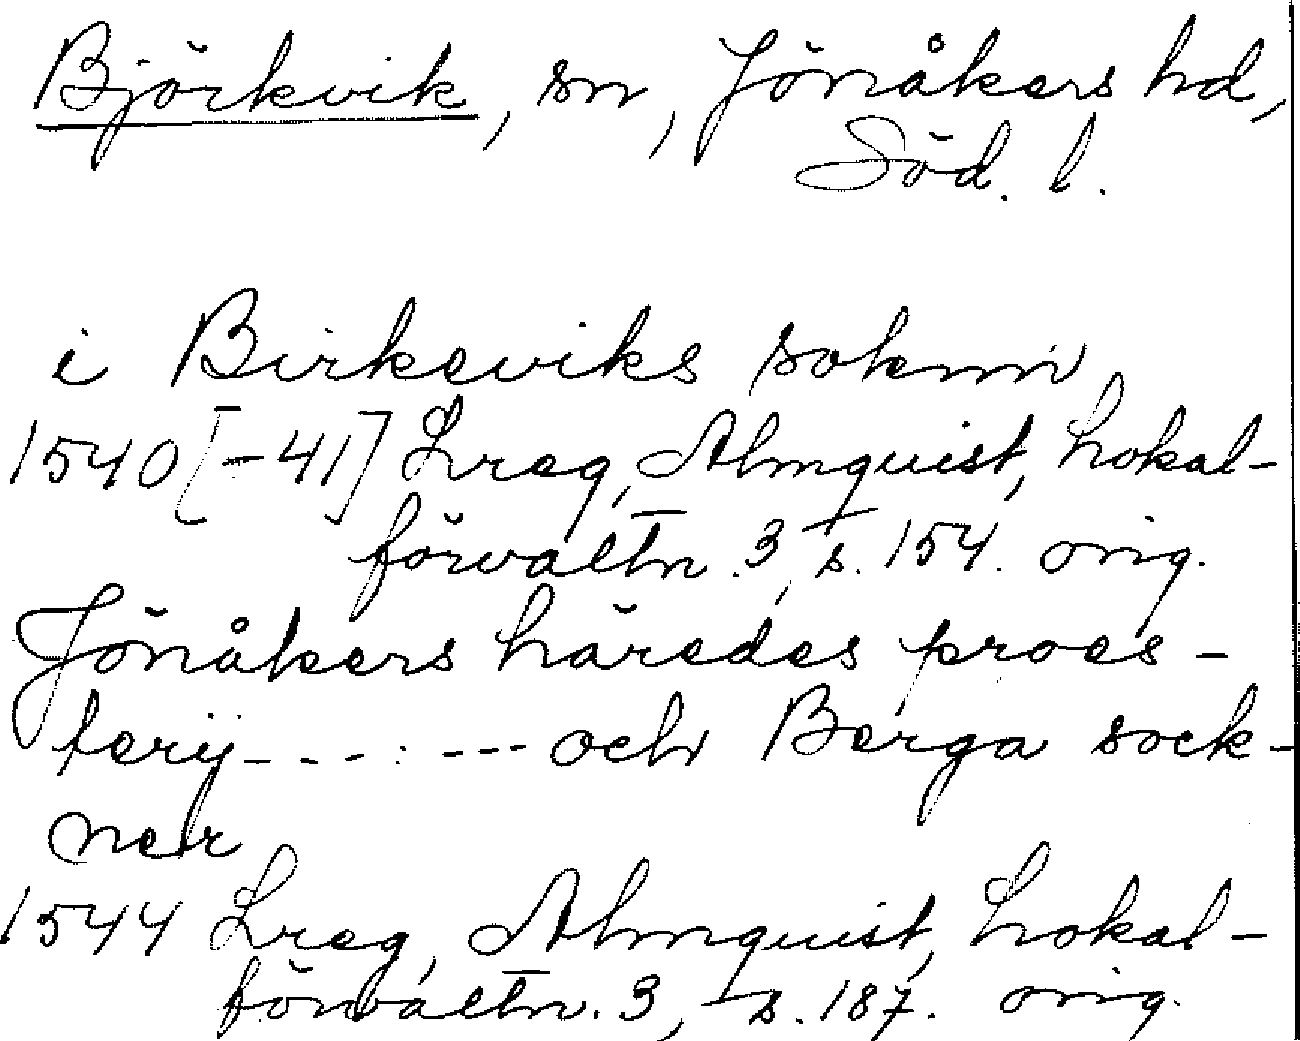 Björkvik, sn, Jönåkers hd,
Söd. l.
i Birkeviks soknn
1540[-41] Lreg, Almquist, Lokal-
förvaltn. 3, s. 154. orig.
Jönåkers häredes proes-
terij---.---och Berga sock-
ner
1544 Lreg, Almquist, Lokal-
förvaltn. 3, s. 187. orig.